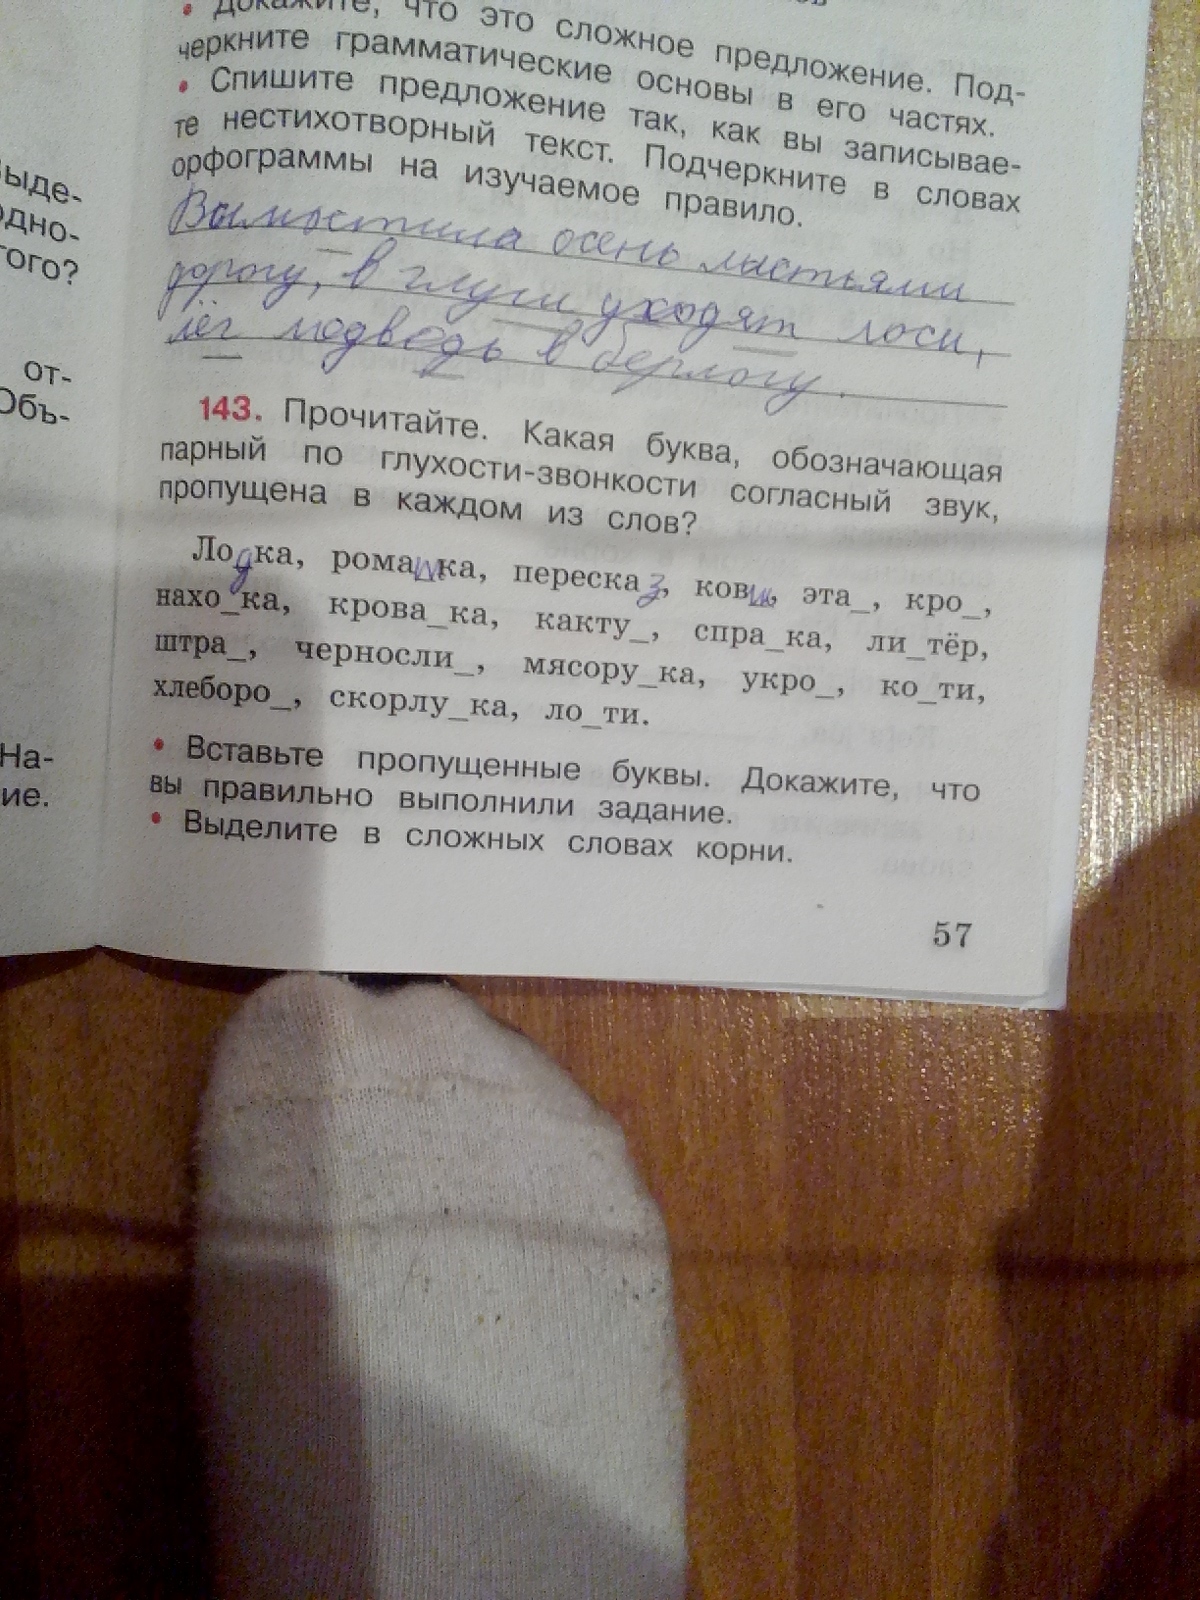 Докажите, что это сложное предложение. Под-
черкните грамматические основы в его частях.
• Спишите предложение так, как вы записывае-
те нестихотворный текст. Подчеркните в словах
орфограммы на изучаемое правило.
осень
дорогу, в глуши уходят лоси,
лёг в берлогу.
143. Прочитайте. Какая буква, обозначающая
парный по глухости-звонкости согласный звук,
пропущена в каждом из слов?
Лодка, ромашка, пересказ, ковш, эта_, кро_,
нахо_ка, крова_ка, какту_, спра_ка, ли_тёр,
штра_, черносли_, мясору_ка, укро_, ко_ти,
хлеборо_, скорлу_ка, ло_ти.
• Вставьте пропущенные буквы. Докажите, что
вы правильно выполнили задание.
• Выделите в сложных словах корни.
57
ыде-
одно-
того?
от-
Объ-
На-
ие.